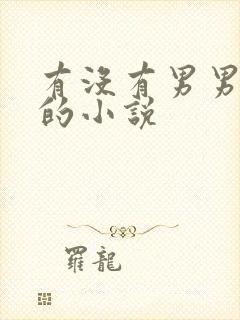 有没有男男
的小说
羅龍